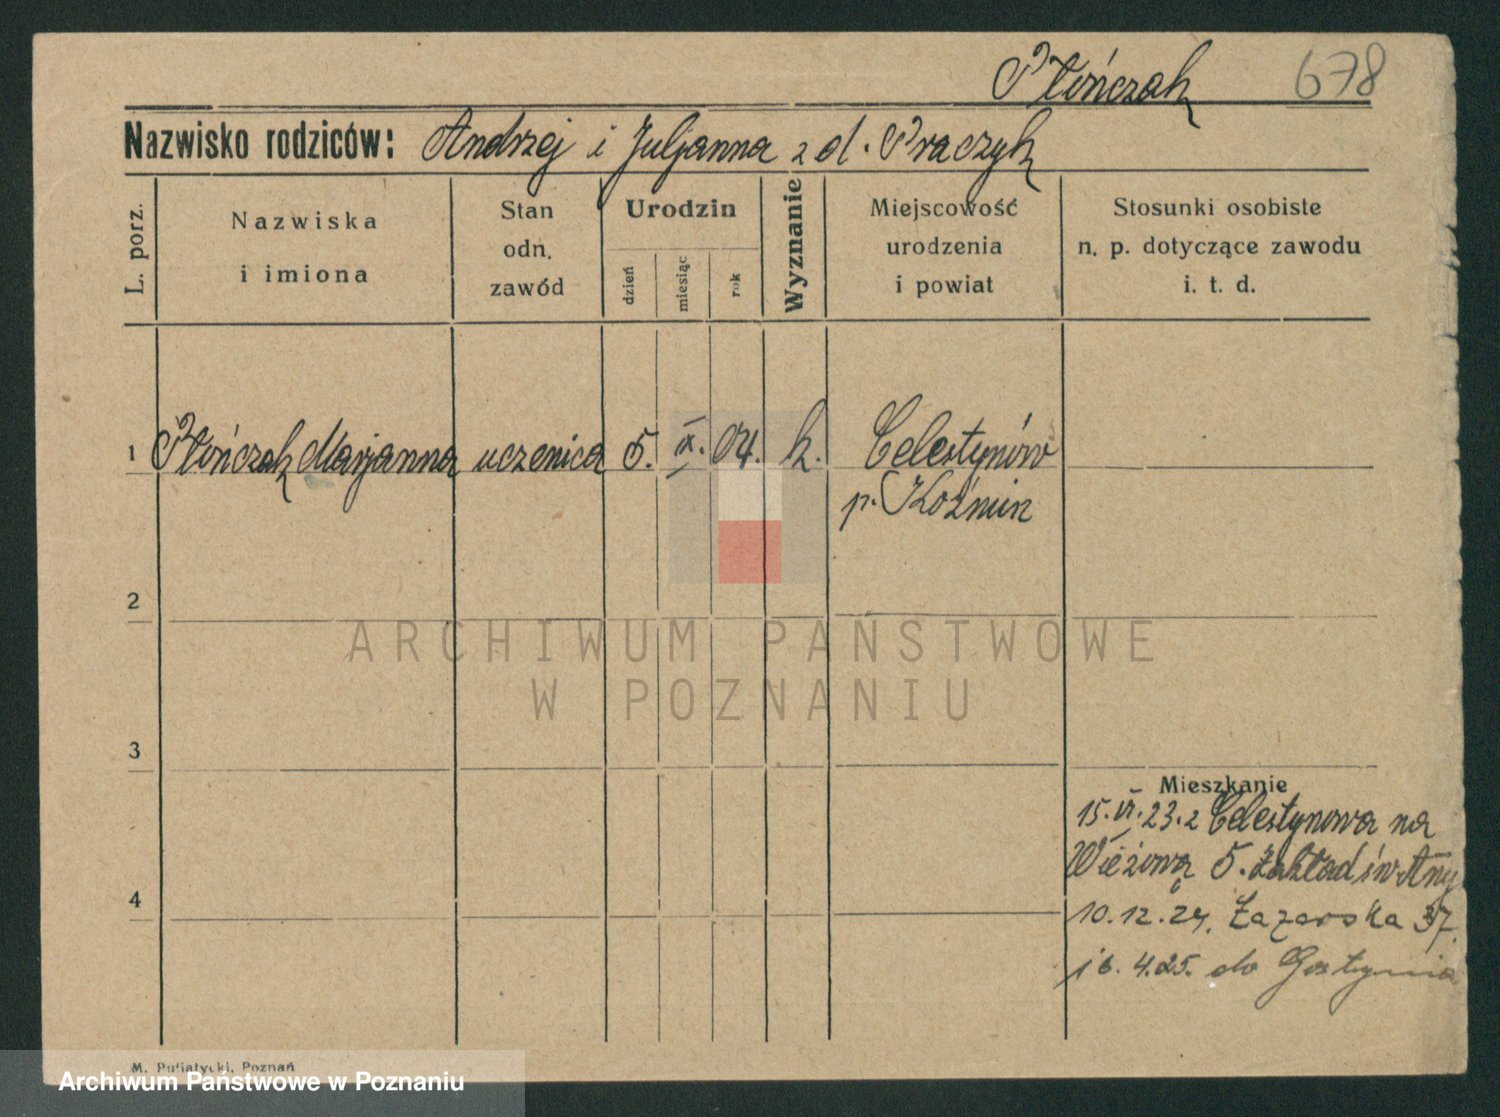 Ptończak 678
Nazwisko rodziców: Andrzej i Juljanna z d. Praczyk
L. porz.
Nazwiska
i imiona
Stan
odn.
zawód
Urodzin
dzień
miesiąc
rok
Wyznanie
Miejscowość
urodzenia
i powiat
Stosunki osobiste
n. p. dotyczące zawodu
i. t. d.
1 Ptończak Marjanna uczenica 5. IX. 04. k. Celestynów
p. Koźmin
2
3
4
Mieszkanie
15. VI. 23. z Celestynowa na
Wieżową 5. Zakład św. Anny
10. 12. 24. Łazarska 37.
16. 4. 25. do Gostynia
M. Putiatycki, Poznań
ARCHIWUM PAŃSTWOWE
W POZNANIU
Archiwum Państwowe w Poznaniu